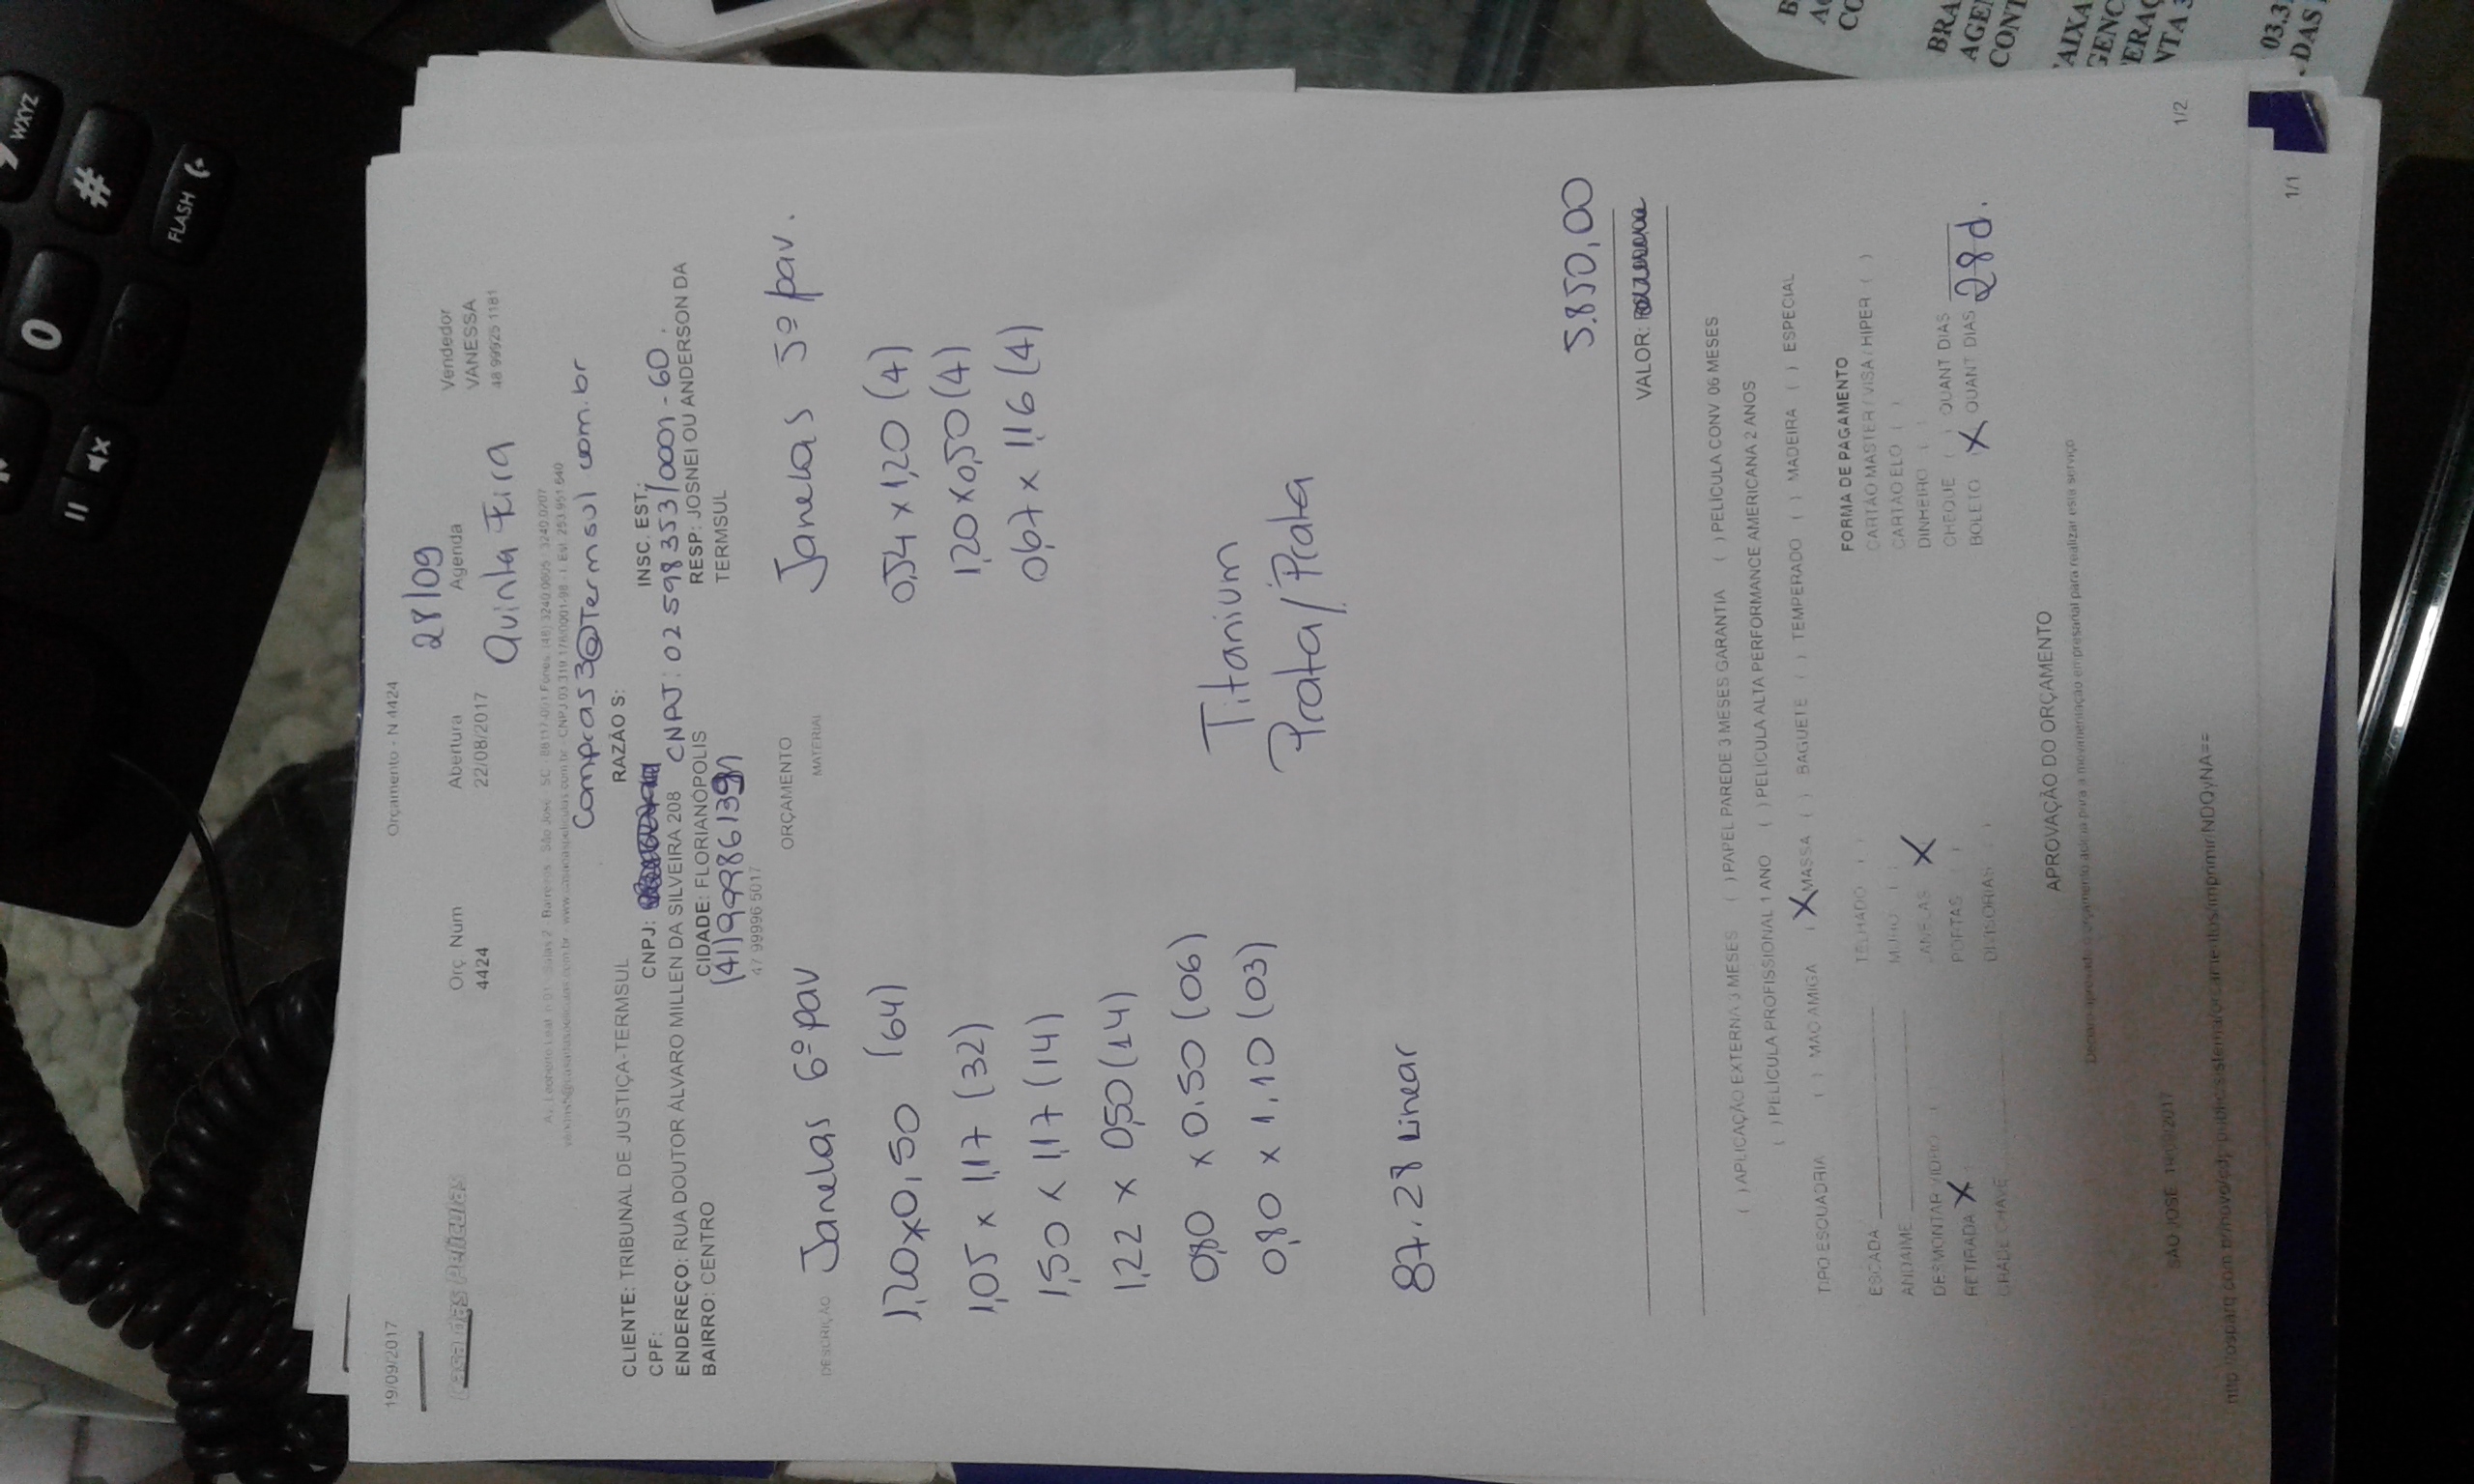 19/09/2017
Orçamento - N 4424
28/09
Orç Num
4424
Abertura
22/08/2017
Agenda
Quinta Feira
Vendedor
VANESSA
48 99925 1181
Compras3@Termsul com.br
CLIENTE: TRIBUNAL DE JUSTIÇA-TERMSUL
RAZÃO S:
CPF:
CNPJ:
INSC. EST.:
CNPJ: 02 598 353/0001-60.
ENDEREÇO: RUA DOUTOR ÁLVARO MILLEN DA SILVEIRA 208
RESP: JOSNEI OU ANDERSON DA TERMSUL
BAIRRO: CENTRO
CIDADE: FLORIANÓPOLIS
47 99996 5017
ORÇAMENTO
DESCRIÇÃO
MATERIAL
Janelas 6º pav
1,20x0,50 (64)
1,05 x 1,17 (32)
1,50 x 1,17 (14)
1,22 x 0,50 (14)
0,80 x 0.50 (06)
0,80 x 1,10 (03)
87,28 Linear
Janelas 5º pav.
0,54 x 1,20 (4)
1,20 x 0,50 (4)
0,67 x 1,16 (4)
Titanium
Prata/Prata
5.850,00
VALOR:
( ) APLICAÇÃO EXTERNA 3 MESES ( ) PAPEL PAREDE 3 MESES GARANTIA ( ) PELICULA CONV 06 MESES
( ) PELÍCULA PROFISSIONAL 1 ANO ( ) PELICULA ALTA PERFORMANCE AMERICANA 2 ANOS
TIPO ESQUADRIA ( ) MÃO AMIGA ( X MASSA ( ) BAGUETE ( ) TEMPERADO ( ) MADEIRA ( ) ESPECIAL
ESCADA
ANDAIME
DESMONTAR VIDRO ( )
RETIRADA X
GRADE CHAVE
TELHADO ( )
MURO ( )
JANELAS X
PORTAS ( )
DIVISORIAS ( )
FORMA DE PAGAMENTO
CARTÃO MASTER / VISA / HIPER ( )
CARTÃO ELO ( )
DINHEIRO ( )
CHEQUE ( ) QUANT DIAS
BOLETO X QUANT DIAS 28d.
APROVAÇÃO DO ORÇAMENTO
SÃO JOSÉ 19/09/2017
1/2
1/1
WXYZ
#
0
FLASH